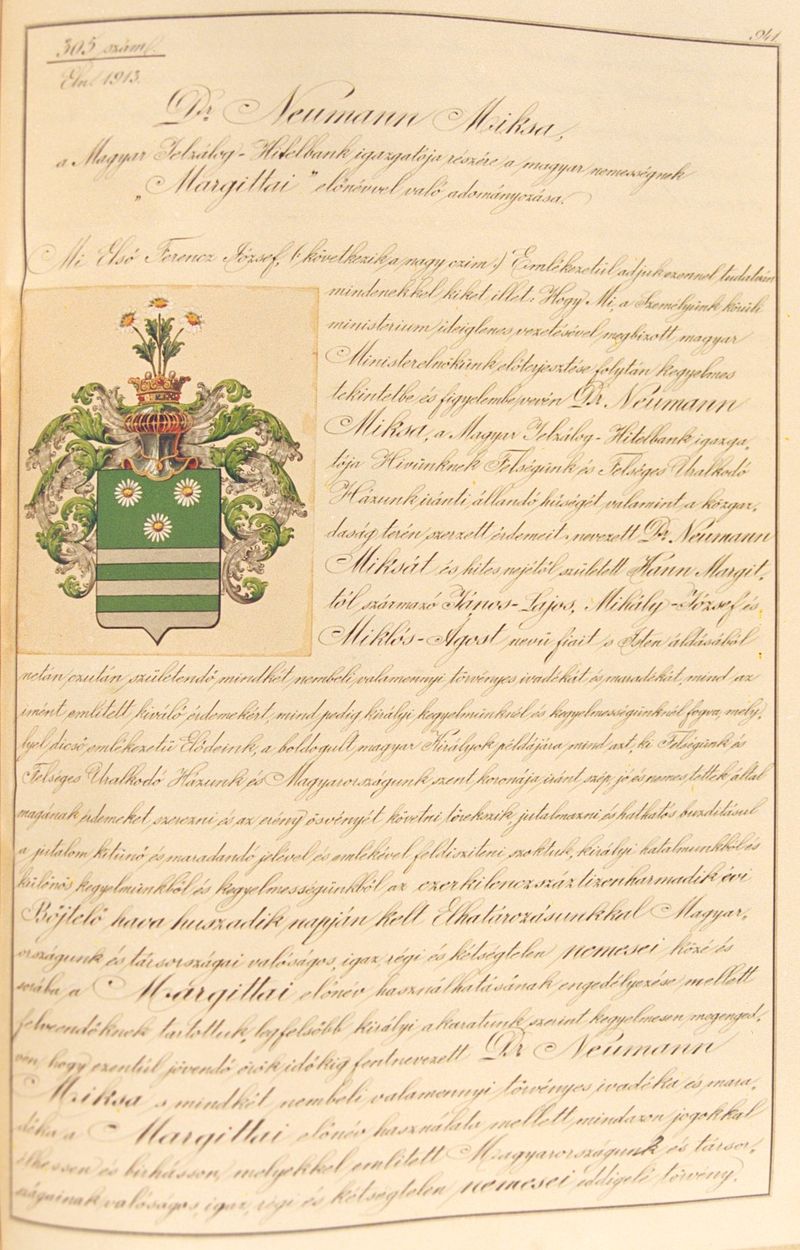 305 szám.
Eln. 1913.
941
Dr Neumann Miksa,
a Magyar Jelzálog-Hitelbank igazgatója részére a magyar nemességnek
„Margittai" előnévvel való adományozása.
Mi Első Ferencz József, (: következik a nagy czim :) Emlékezetül adjuk ezennel tudatván
mindenekkel kiket illet: Hogy Mi, a Személyünk körüli
ministerium ideiglenes vezetésével megbizott magyar
Ministerelnökünk előterjesztése folytán kegyelmes
tekintetbe és figyelembe vevén Dr Neumann
Miksa, a Magyar Jelzálog-Hitelbank igazga-
tója Hivünknek Felségünk és Felséges Uralkodó
Házunk iránti állandó hűségét valamint a közgaz-
daság terén szerzett érdemeit, nevezett Dr Neumann
Miksát és hites nejétől született Kann Margit-
tól származó János-Lajos, Mihály-József és
Miklós-Ágost nevű fiait s Isten áldásából
netán ezután születendő mindkét nembeli valamennyi törvényes ivadékát és maradékát, mind az
imént emlitett kiváló érdemekért, mind pedig királyi kegyelmünknél és kegyelmességünknél fogva, mely-
lyel dicső emlékezetü Elődeink, a boldogult magyar Királyok példájára mind azt, ki Felségünk és
Felséges Uralkodó Házunk és Magyarországunk szent koronája iránt szép, jó és nemes tettek által
magának érdemeket szerezni és az erény ösvényét követni törekszik jutalmazni és hathatós buzditásul
a jutalom kitünő és maradandó jelével és emlékével feldisziteni szoktuk, királyi hatalmunkból és
különös kegyelmünkből és kegyelmességünkből az ezerkilenczszáztizenharmadik évi
Bőjtelő hava huszadik napján kelt Elhatározásunkkal Magyar-
országunk és társországai valóságos, igaz, régi és kétségtelen nemesei közé és
sorába a Margittai előnév használhatásának engedélyezése mellett
felveendőknek tartottuk, legfelsőbb királyi akaratunk szerint kegyelmesen megenged-
vén, hogy ezentúl jövendő örök időkig fentnevezett Dr Neumann
Miksa s mindkét nembeli valamennyi törvényes ivadéka és mara-
déka a Margittai előnév használata mellett mindazon jogokkal
élhessen és birhasson, melyekkel emlitett Magyarországunk és társor-
szágainak valóságos, igaz, régi és kétségtelen nemesei eddigelé törvény,